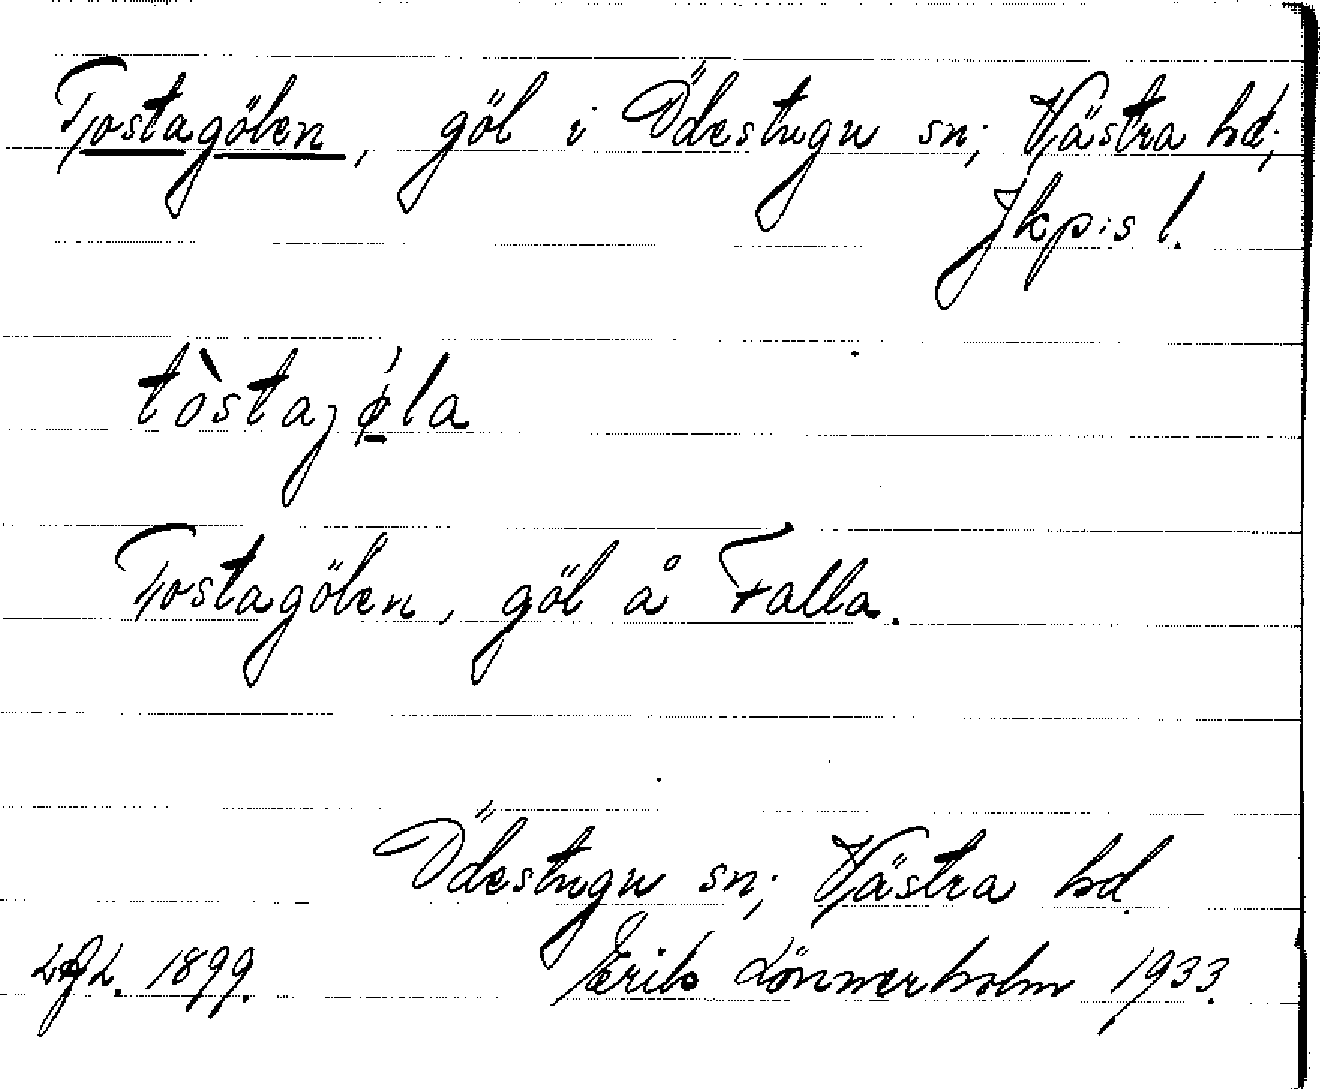 Tostagölen, göl i Ödestugu sn; Västra hd;
Jkp:s l.
tòstajǿla
Tostagölen, göl å Falla.
Ödestugu sn; Västra hd.
1899. Erik Lönnerholm 1933.